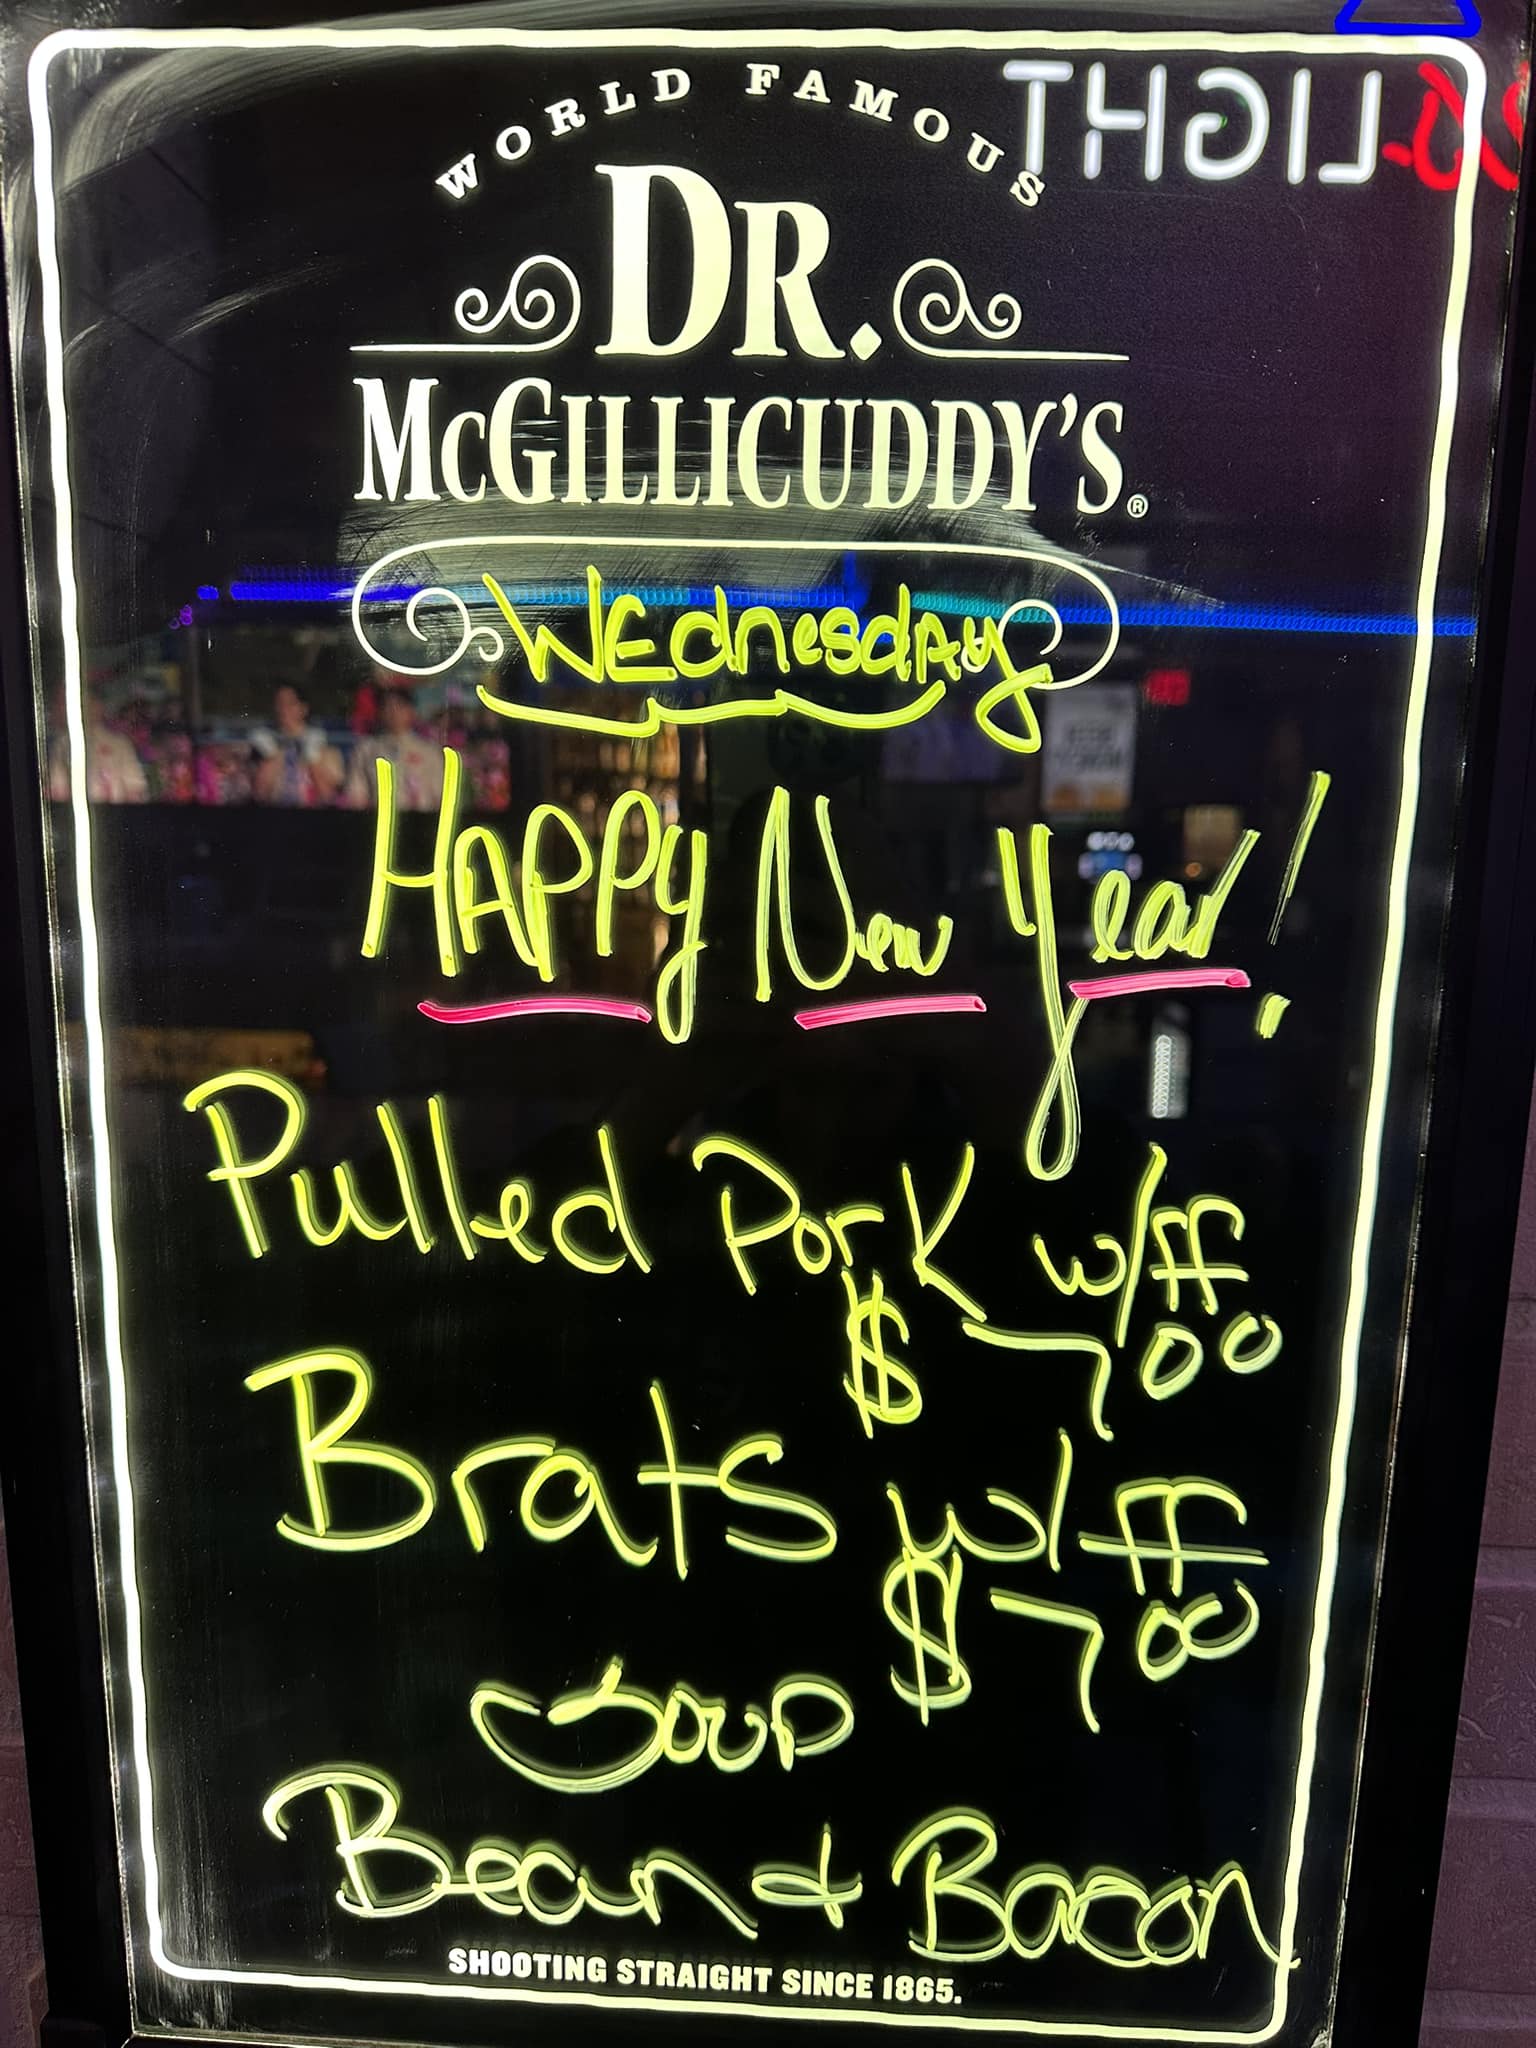 WORLD FAMOUS
LIGHT
DR.
McGILLICUDDY'S®
WEdnesdAy
HAPPy New Year!
Pulled Pork w/ff
$7.00
Brats w/ff
$7.00
Soup
Bean & Bacon
SHOOTING STRAIGHT SINCE 1865.